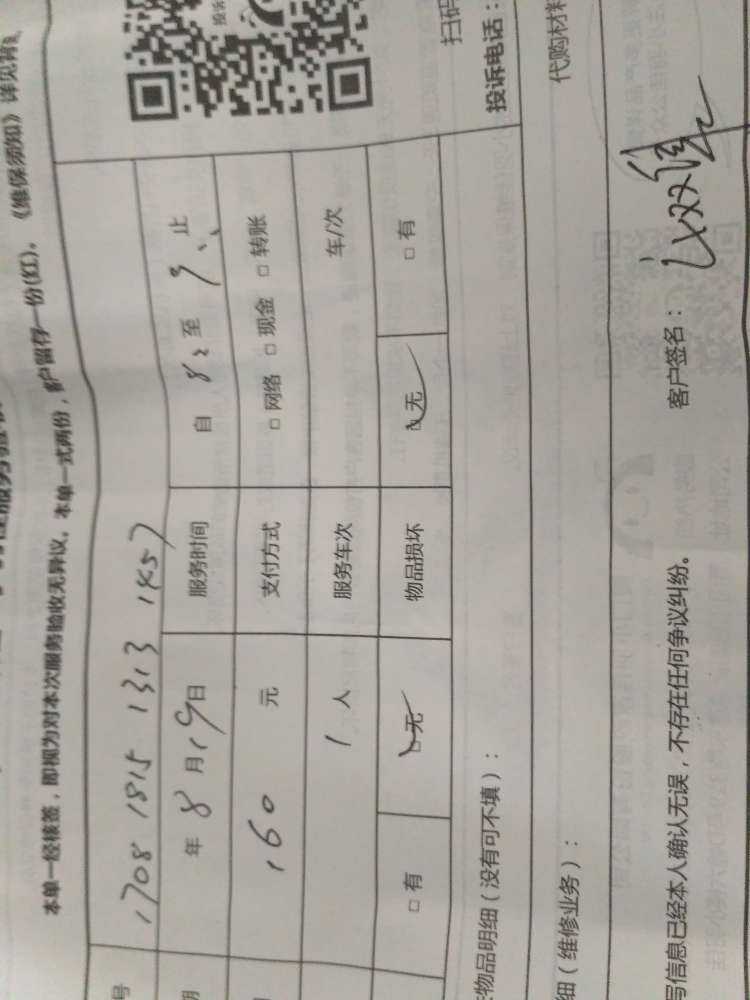 《维保须知》详见背
本单一经核签，即视为对本次服务验收无异议。本单一式两份，客户留存一份(红)。
号 1708 1815 1313 1457
年 8 月 19 日 服务时间 自 8: 至 9: 止
160 元 支付方式 □ 网络 □ 现金 □ 转账
1 人 服务车次 车/次
□ 有 □ 无 物品损坏 □ 无 □ 有
物品明细（没有可不填）：
扫码
投诉电话：
细（维修业务）：
代购材料
写信息已经本人确认无误，不存在任何争议纠纷。 客户签名：